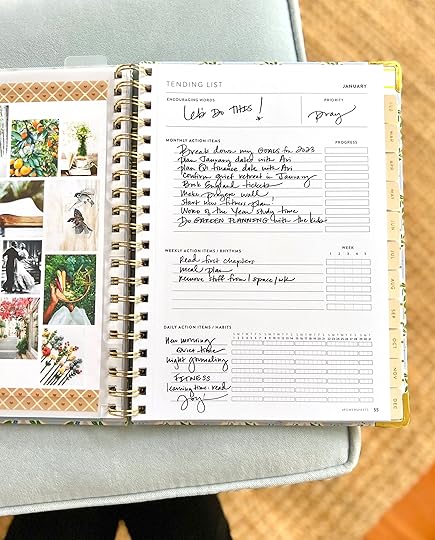 TENDING LIST
JANUARY
ENCOURAGING WORDS
PRIORITY
Let's DO THIS!
pray
MONTHLY ACTION ITEMS
PROGRESS
Break down my GOALS for 2023
plan January dates with Ari
plan Q1 finance date with Ari
Confirm quiet retreat in January
Book England tickets
Make prayer wall
Start new fitness plan!
WORD of the Year study time
Do GARDEN PLANNING with the kids
WEEKLY ACTION ITEMS / RHYTHMS
WEEK
1 2 3 4 5
Read first chapters
meal plan
Remove stuff from 1 space/wk
DAILY ACTION ITEMS / HABITS
S M T W T F S S M T W T F S S M T W T F S S M T W T F S
1 2 3 4 5 6 7 8 9 10 11 12 13 14 15 16 17 18 19 20 21 22 23 24 25 26 27 28
New morning
Quiet time
night journaling
FITNESS
learning time: read
Joy
POWERSHEETS 55
MAR
APR
MAY
JUN
JUL
AUG
SEP
OCT
NOV
DEC